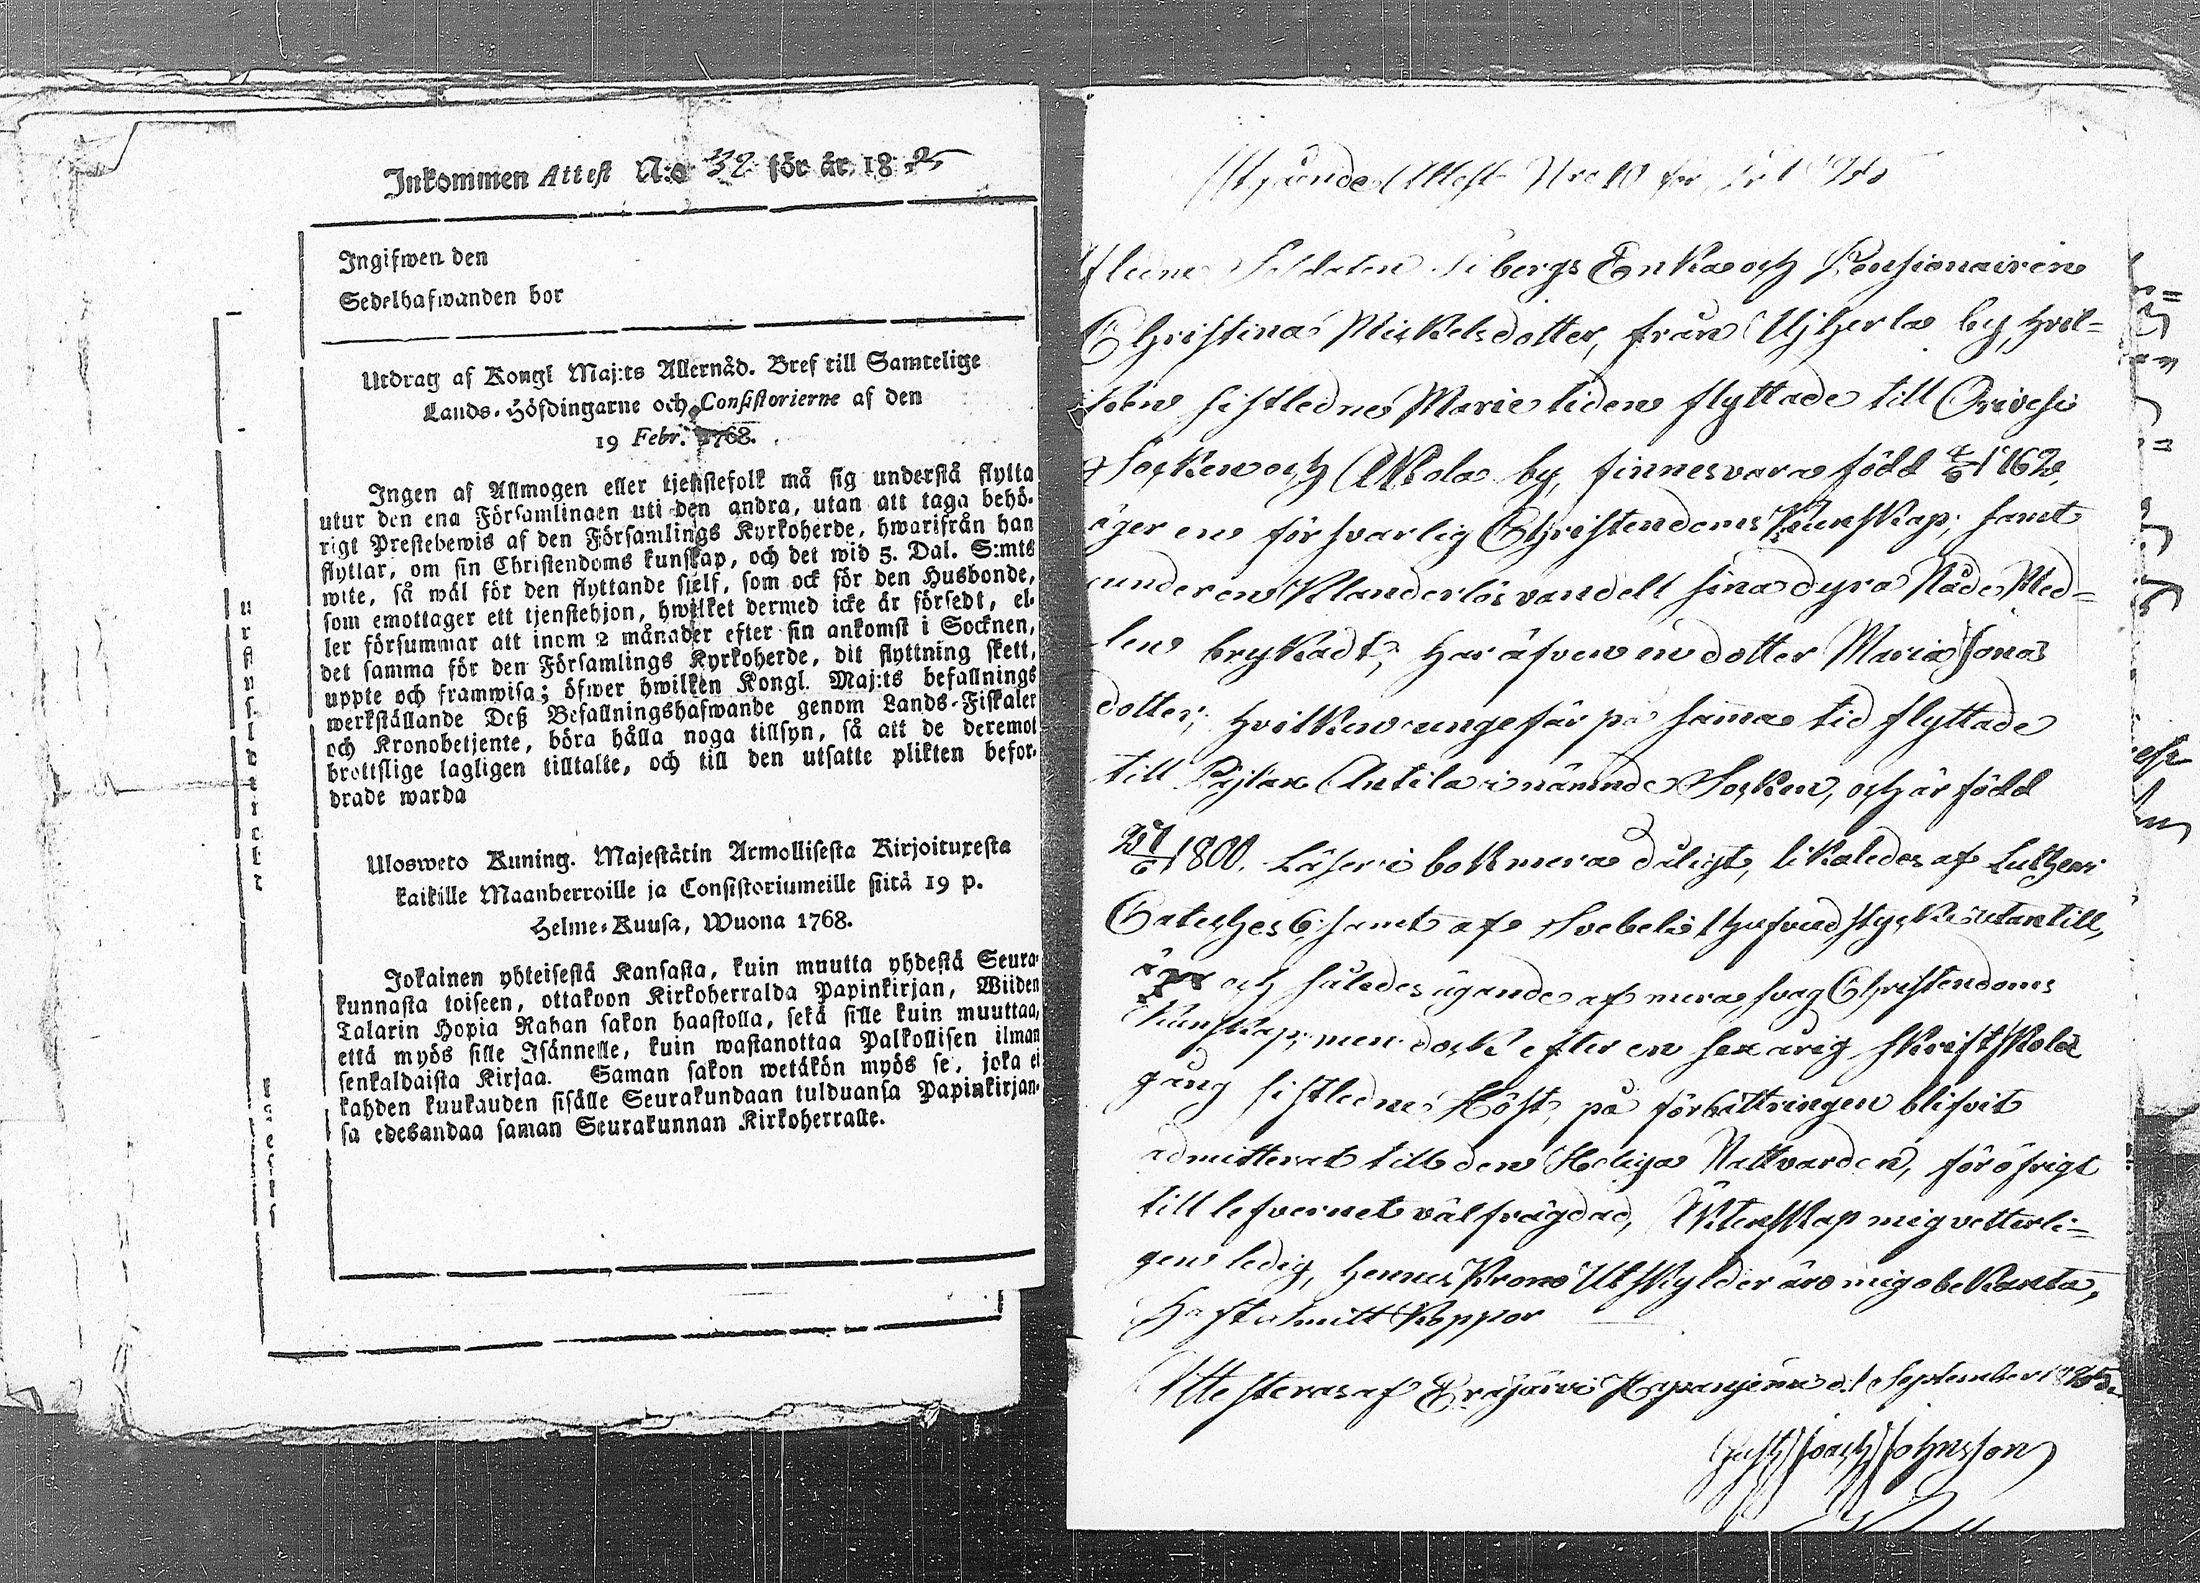 Inkommen Attest N:o 32 för år 1825
Ingifwen den
Sedelhafwanden bor
Utdrag af Kongl Maj:ts Allernåd. Bref till Samtelige
Lands-Höfdingarne och Consistorierne af den
19 Febr. 1768.
Ingen af Allmogen eller tjenstefolk må sig understå flytta
utur den ena Församlingen uti den andra, utan att taga behö-
rigt Prestebewis af den Församlings Kyrkoherde, hwarifrån han
flyttar, om sin Christendoms kunskap, och det wid 5. Dal. S:mts
wite, så wäl för den flyttande sjelf, som ock för den Husbonde,
som emottager ett tjenstehjon, hwilket dermed icke är försedt, el-
ler försummar att inom 2 månader efter sin ankomst i Socknen,
det samma för den Församlings Kyrkoherde, dit flyttning skett,
uppte och framwisa; öfwer hwilken Kongl. Maj:ts befallnings
werkställande Deß Befallningshafwande genom Lands-Fiskaler
och Kronobetjente, böra hålla noga tillsyn, så att de deremot
brottslige lagligen tilltalte, och till den utsatte plikten befor-
drade warda
Ulosweto Kuning. Majestätin Armollisesta Kirjoituxesta
kaikille Maanherroille ja Consistoriumeille siitä 19 p.
Helme-Kuusa, Wuona 1768.
Jokainen yhteisestä Kansasta, kuin muutta yhdestä Seura-
kunnasta toiseen, ottakoon Kirkoherralda Papinkirjan, Wiiden
Talarin Hopia Rahan sakon haastolla, sekä sille kuin muuttaa,
että myös sille Isännelle, kuin wastanottaa Palkollisen ilman
senkaldaista Kirjaa. Saman sakon wetäkön myös se, joka ei
kahden kuukauden sisälle Seurakundaan tulduansa Papinkirjan-
sa edesandaa saman Seurakunnan Kirkoherralle.
Attest N:o 10 för år 1825
Soldaten bergs Enka och Pensionairen
Christina Mickelsdotter, från by, hvil-
ken sistledne Marie tiden flyttade till Orivesi
Socken och by, finnes vara född 1762,
äger en försvarlig Christendoms Kunskap, samt
under en klanderlös vandell sina dyra Nåde Med-
len brukadt, har äfven en dotter Maria Jonas
dotter, hvilken ungefär på samma tid flyttade
till Antila i nämnde Socken, och är född
1800. Läser i bok mera dåligt, likaledes af Lutheri
Cateches 6, samt af Svebelii 1 hufvudstycke utantill,
och således ägande af mera svag Christendoms
Kunskap, men dock efter en sexårig skriftskole
gång sistledne Höst, på förbättringen blifvit
admitterat till den Heliga Nattvarden, för öfrigt
till lefvernet välfrägdad, Äktenskap mig vetterli-
gen ledig, hennes Krono Utskylder äro mig obekanta,
Haft Koppor
Attesteras af Eräjärvi d. 1 September 1825
Johnsson